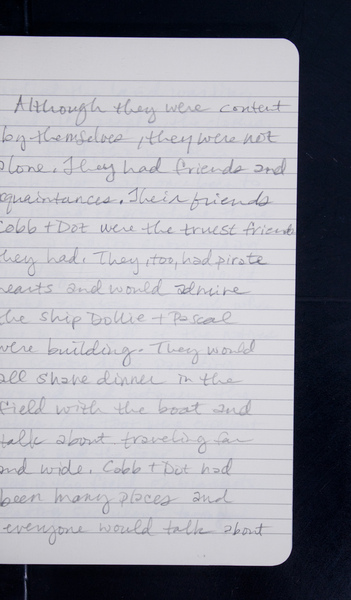 Although they were content
by themselves, they were not
alone. They had friends and
acquaintances. Their friends
Cobb + Dot were the truest friends
they had. They, too, had pirate
hearts and would admire
the ship Dollie + Pascal
were building. They would
all share dinner in the
field with the boat and
talk about traveling far
and wide. Cobb + Dot had
been many places and
everyone would talk about